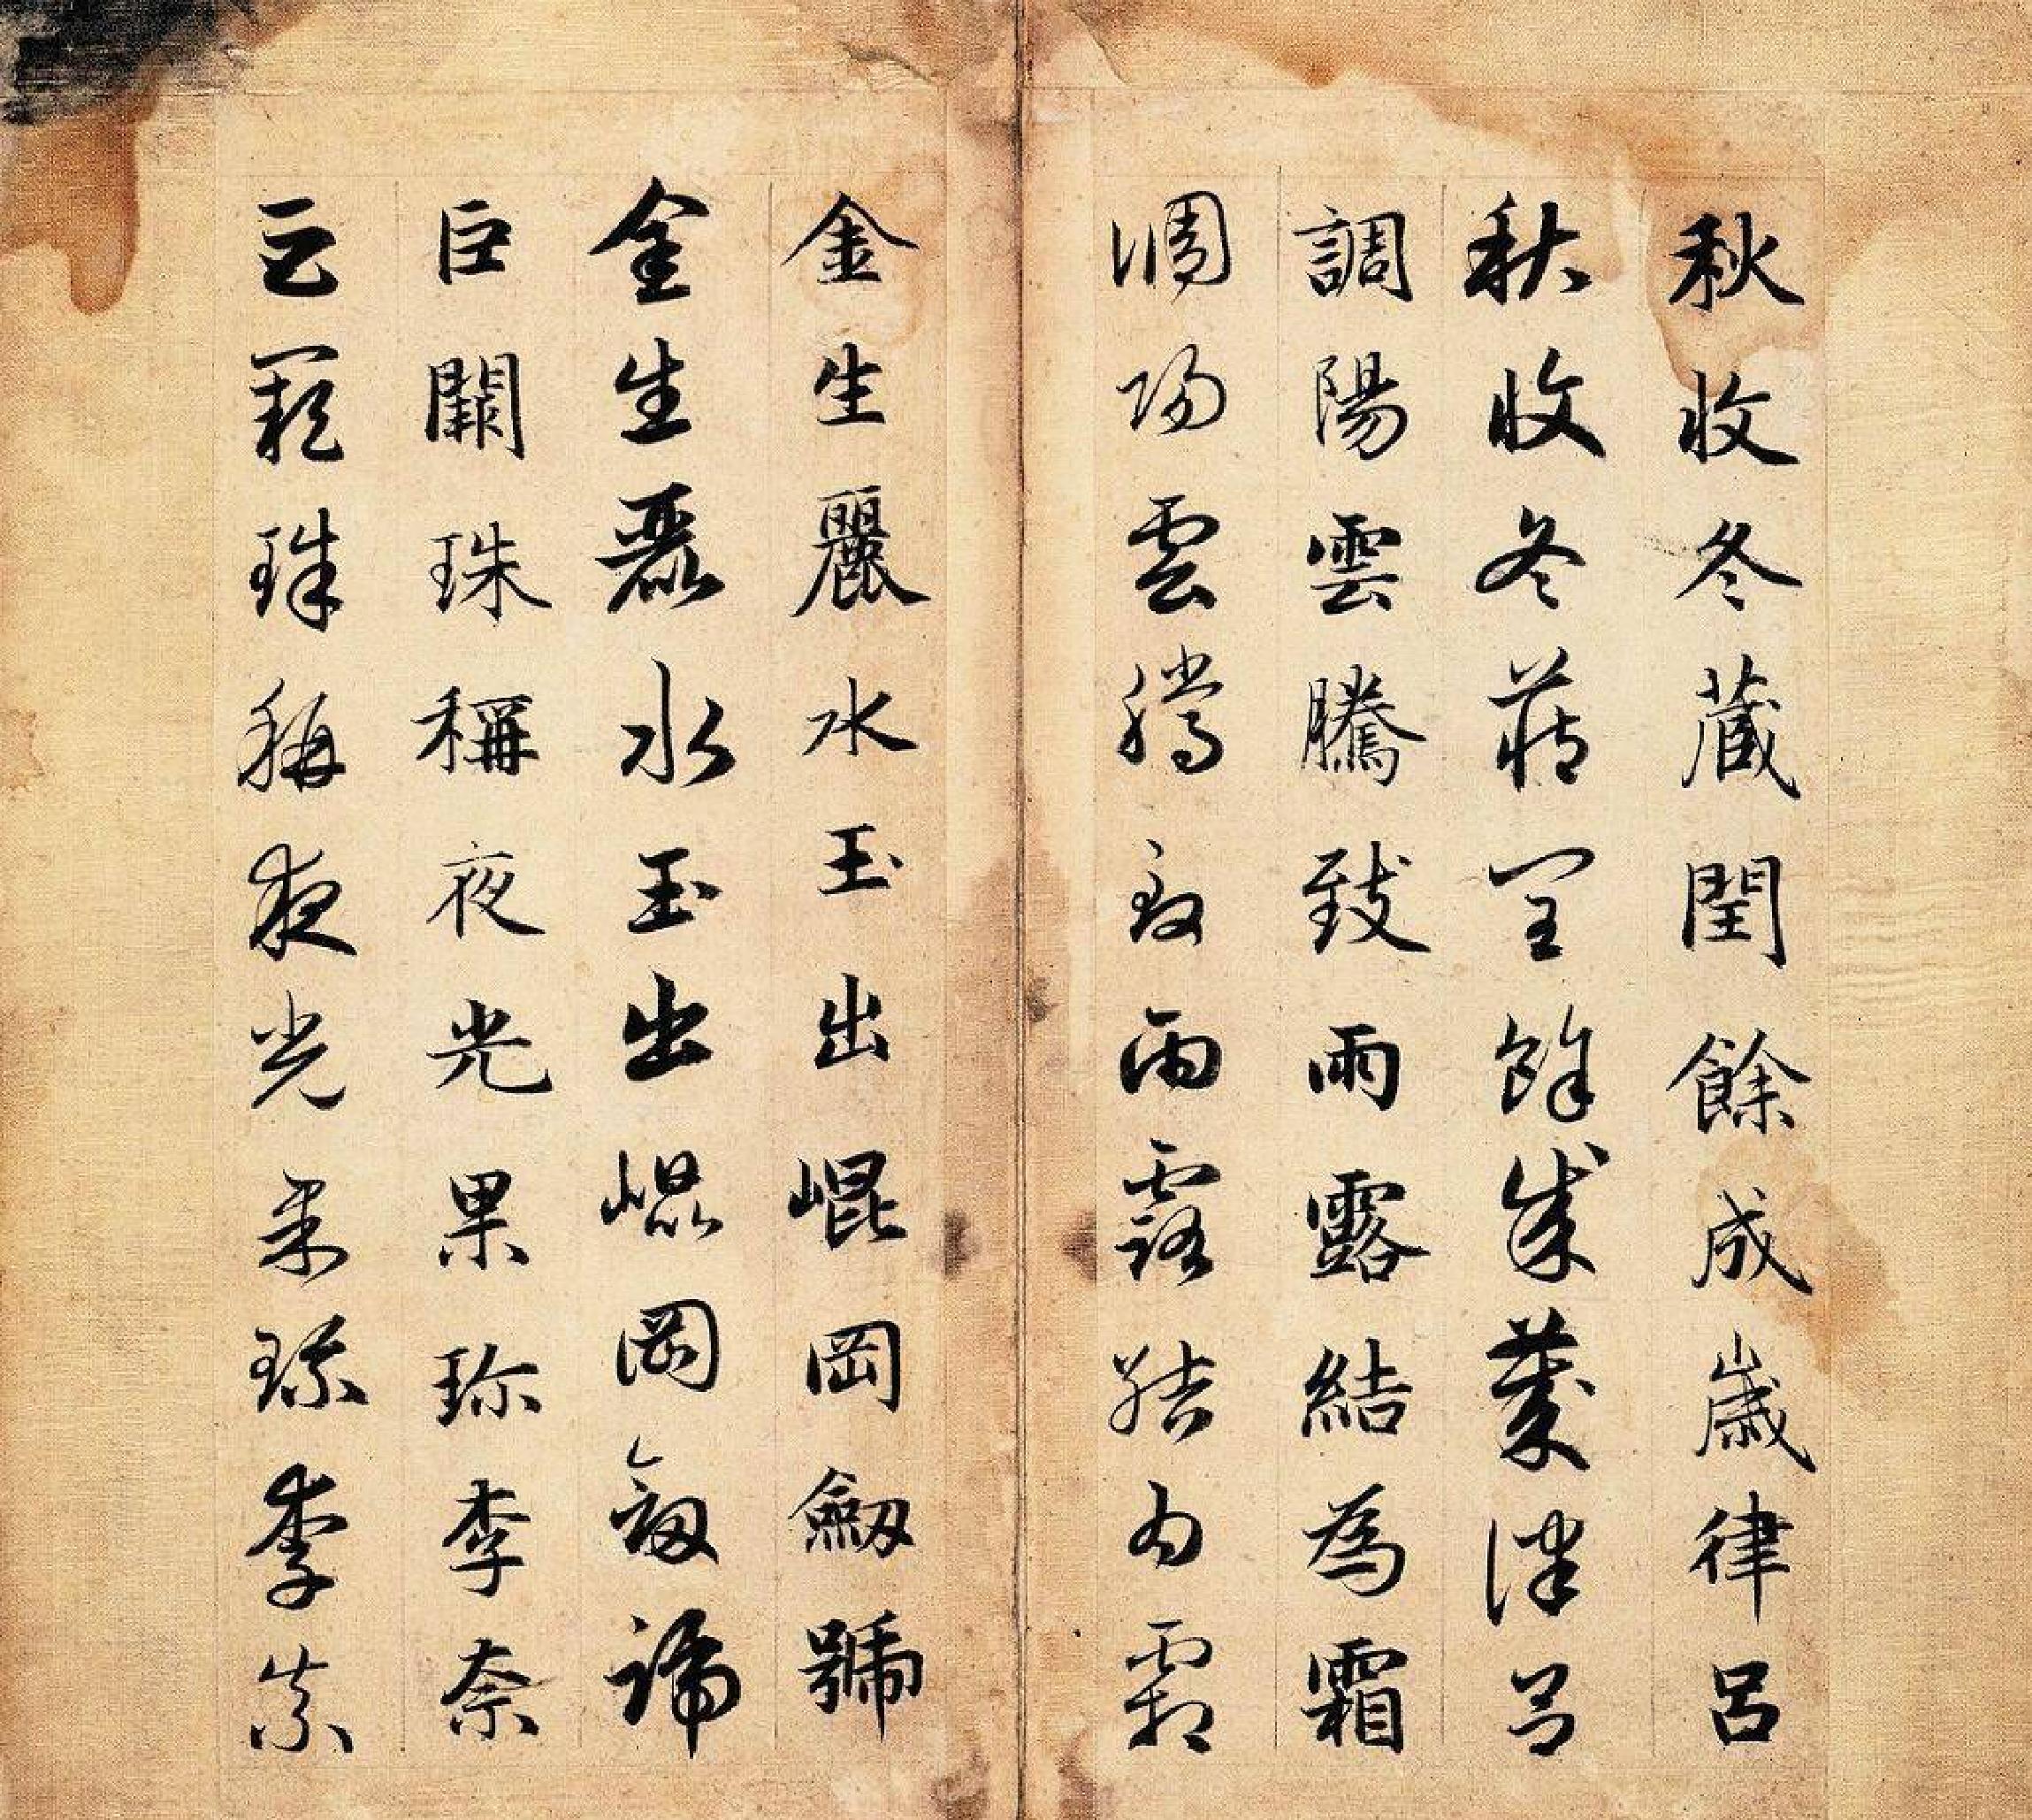 秋收冬蔵閏餘成歲律呂
秋收冬蔵閏餘成歲律呂
調陽雲騰致雨露結為霜
調陽雲騰致雨露結為霜
金生麗水玉出崐岡劒號
金生麗水玉出崐岡劒號
巨闕珠稱夜光果珎李柰
巨闕珠稱夜光果珎李柰